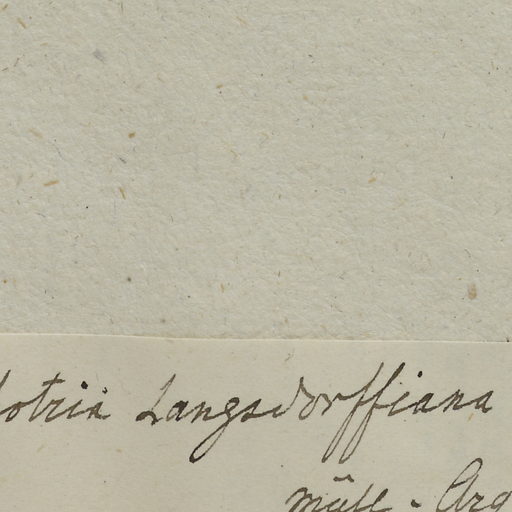 otria Langsdorffiana
Müll - Arg